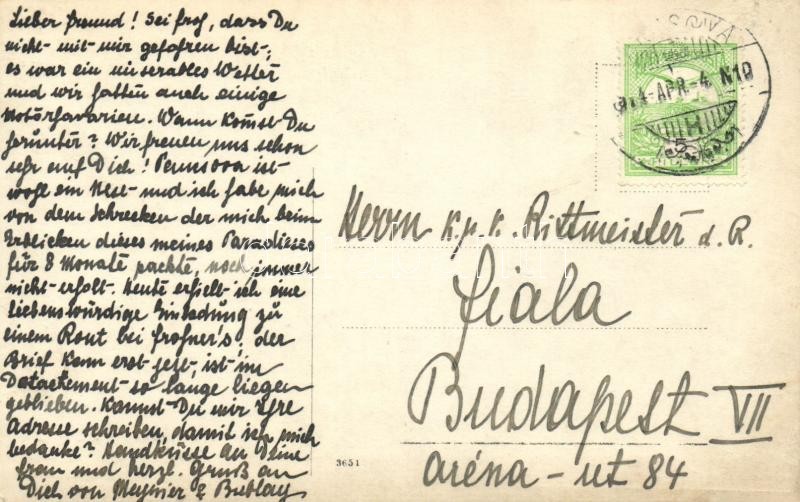 Lieber Freund! Sei froh, dass Du
nicht mit mir gefahren bist,
es war ein miserables Wetter
und wir hatten auch einige
Motorhavarien. Wann komst Du
herunter? Wir freuen uns schon
sehr auf Dich! ist
wohl ein Nest und ich habe mich
von dem Schrecken der mich beim
Erblicken dieses meines Paradieses
für 8 Monate packte, noch immer
nicht erholt. Heute erhielt ich eine
liebenswürdige Einladung zu
einem Rout bei der
Brief kam erst jetzt, ist im
so lange liegen
geblieben. Kannst Du mir Ihre
Adresse schreiben, damit ich mich
bedanke? Handküsse an Deine
Frau und herzl. Gruß an
Dich von
Herrn k.u.k. Rittmeister d. R.
Fiala
Budapest VII
aréna-ut 84
3651
914 APR.-4. N10